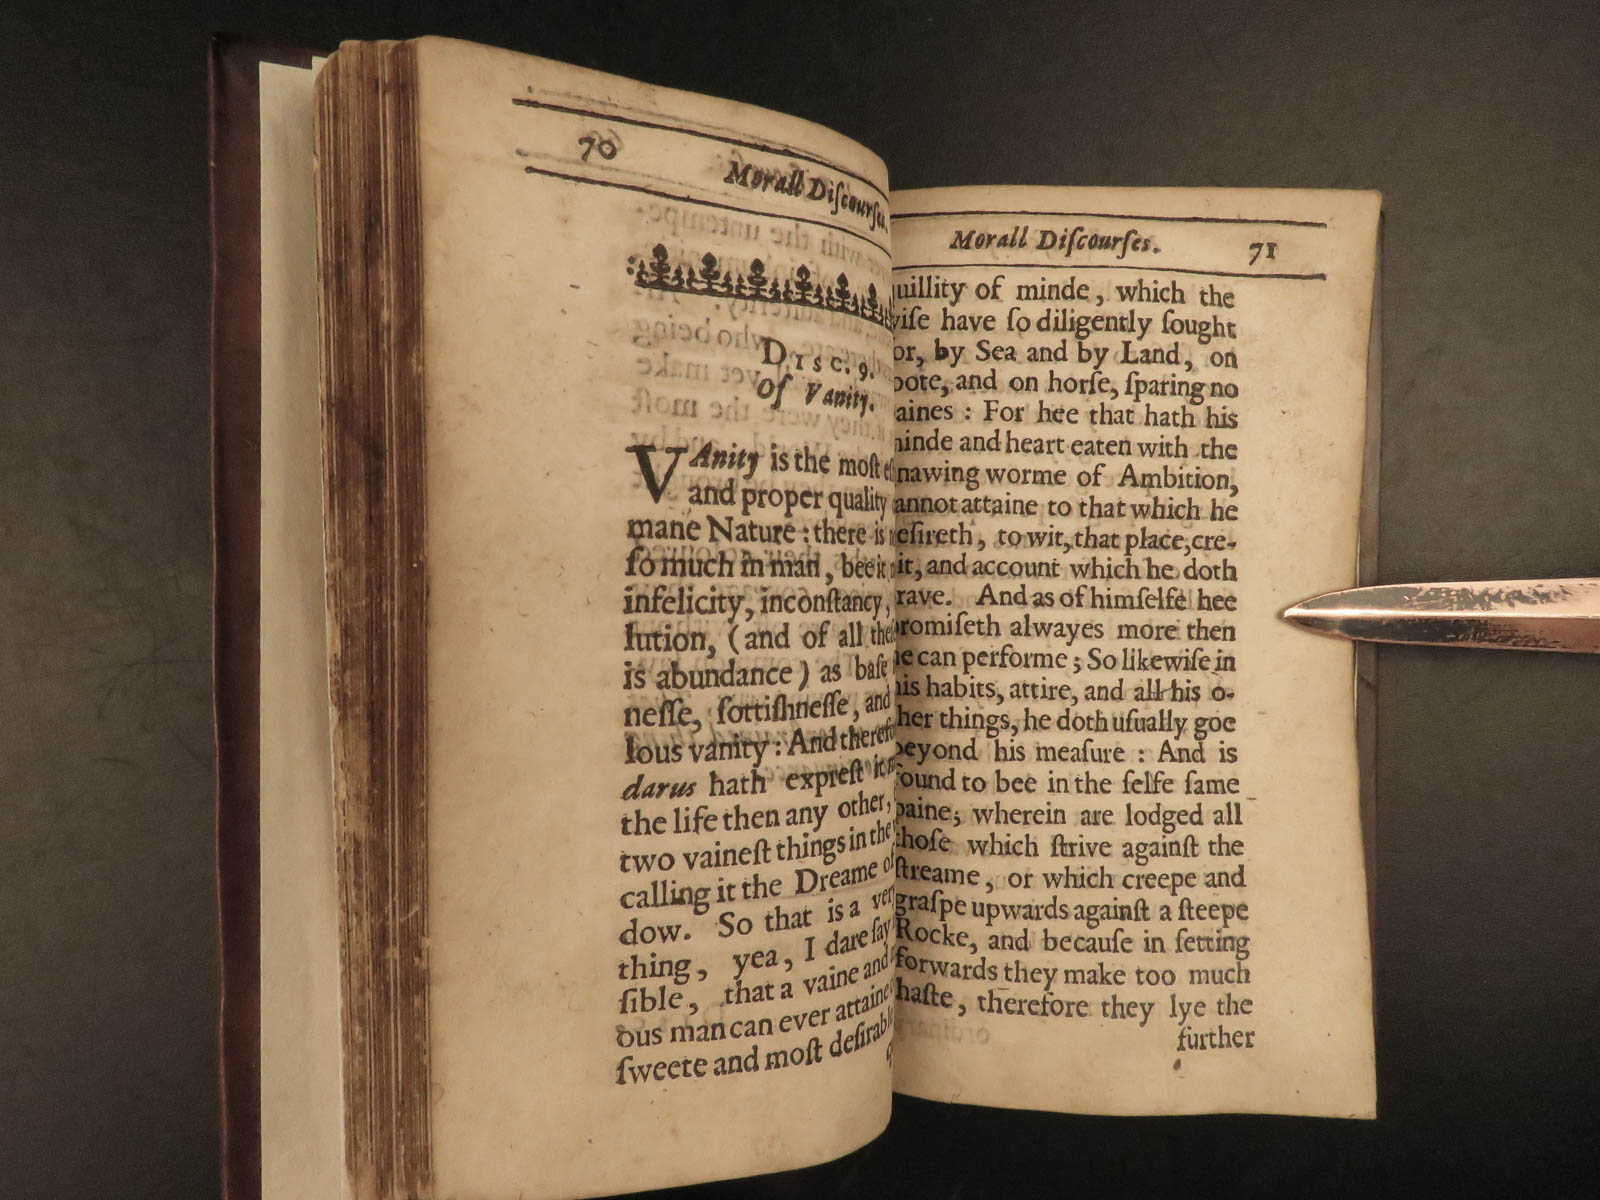 70
Morall Diſcourſes.
DISC. 9.
Of Vanity.
VAnity is the moſt
and proper quality
mane Nature : there is
ſo much in man, bee it
infelicity, inconſtancy,
lution, (and of all
is abundance) as baſe
neſſe, ſottiſhneſſe, and
lous vanity : And
darus hath expreſt it
the life then any other,
two vaineſt things in the
calling it the Dreame of
dow. So that is a
thing, yea, I dare ſay
ſible, that a vaine and
ous man can ever attaine
ſweete and moſt
Morall Diſcourſes. 71
uillity of minde, which the
iſe have ſo diligently ſought
or, by Sea and by Land, on
oote, and on horſe, ſparing no
aines : For hee that hath his
inde and heart eaten with the
nawing worme of Ambition,
annot attaine to that which he
eſireth, to wit, that place, cre-
it, and account which he doth
rave. And as of himſelfe hee
romiſeth alwayes more then
e can performe ; So likewiſe in
is habits, attire, and all his o-
her things, he doth uſually goe
beyond his meaſure : And is
found to bee in the ſelfe ſame
paine, wherein are lodged all
thoſe which ſtrive againſt the
ſtreame, or which creepe and
graſpe upwards againſt a ſteepe
Rocke, and becauſe in ſetting
forwards they make too much
haſte, therefore they lye the
further